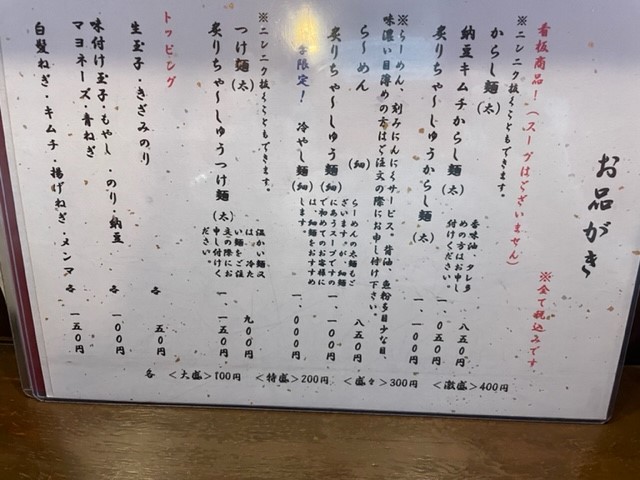 お品がき
※全て税込みです
看板商品!(スープはございません)
※ニンニク抜くこともできます。
からし麺(太) 八五〇円
香味油、タレ多めの方はお申し付けください。
納豆キムチからし麺(太) 一、〇五〇円
炙りちゃ〜しゅうからし麺(太) 一、一〇〇円
※らーめん、刻みにんにくサービス。背油、魚粉多目少な目、
味濃い目薄めの方はご注文の際にお申し付け下さい。
ら〜めん(細) 八五〇円
らーめんの太麺もございます。が、細麺にあうスープですので初めてのお客様には細麺をおすすめします
炙りちゃ〜しゅう麺(細) 一、一〇〇円
限定! 冷やし麺(細) 一、〇〇〇円
※ニンニク抜くこともできます。
つけ麺(太) 九〇〇円
温かい麺又は、冷たい麺をご注文の際にお申し付けください。
炙りちゃ〜しゅうつけ麺(太) 一、一五〇円
トッピング
生玉子・きざみのり 各 五〇円
味付け玉子・もやし・のり・納豆
マヨネーズ・青ねぎ 各 一〇〇円
白髪ねぎ・キムチ・揚げねぎ・メンマ 各 一五〇円
各 <大盛>100円 <特盛>200円 <盛々>300円 <激盛>400円